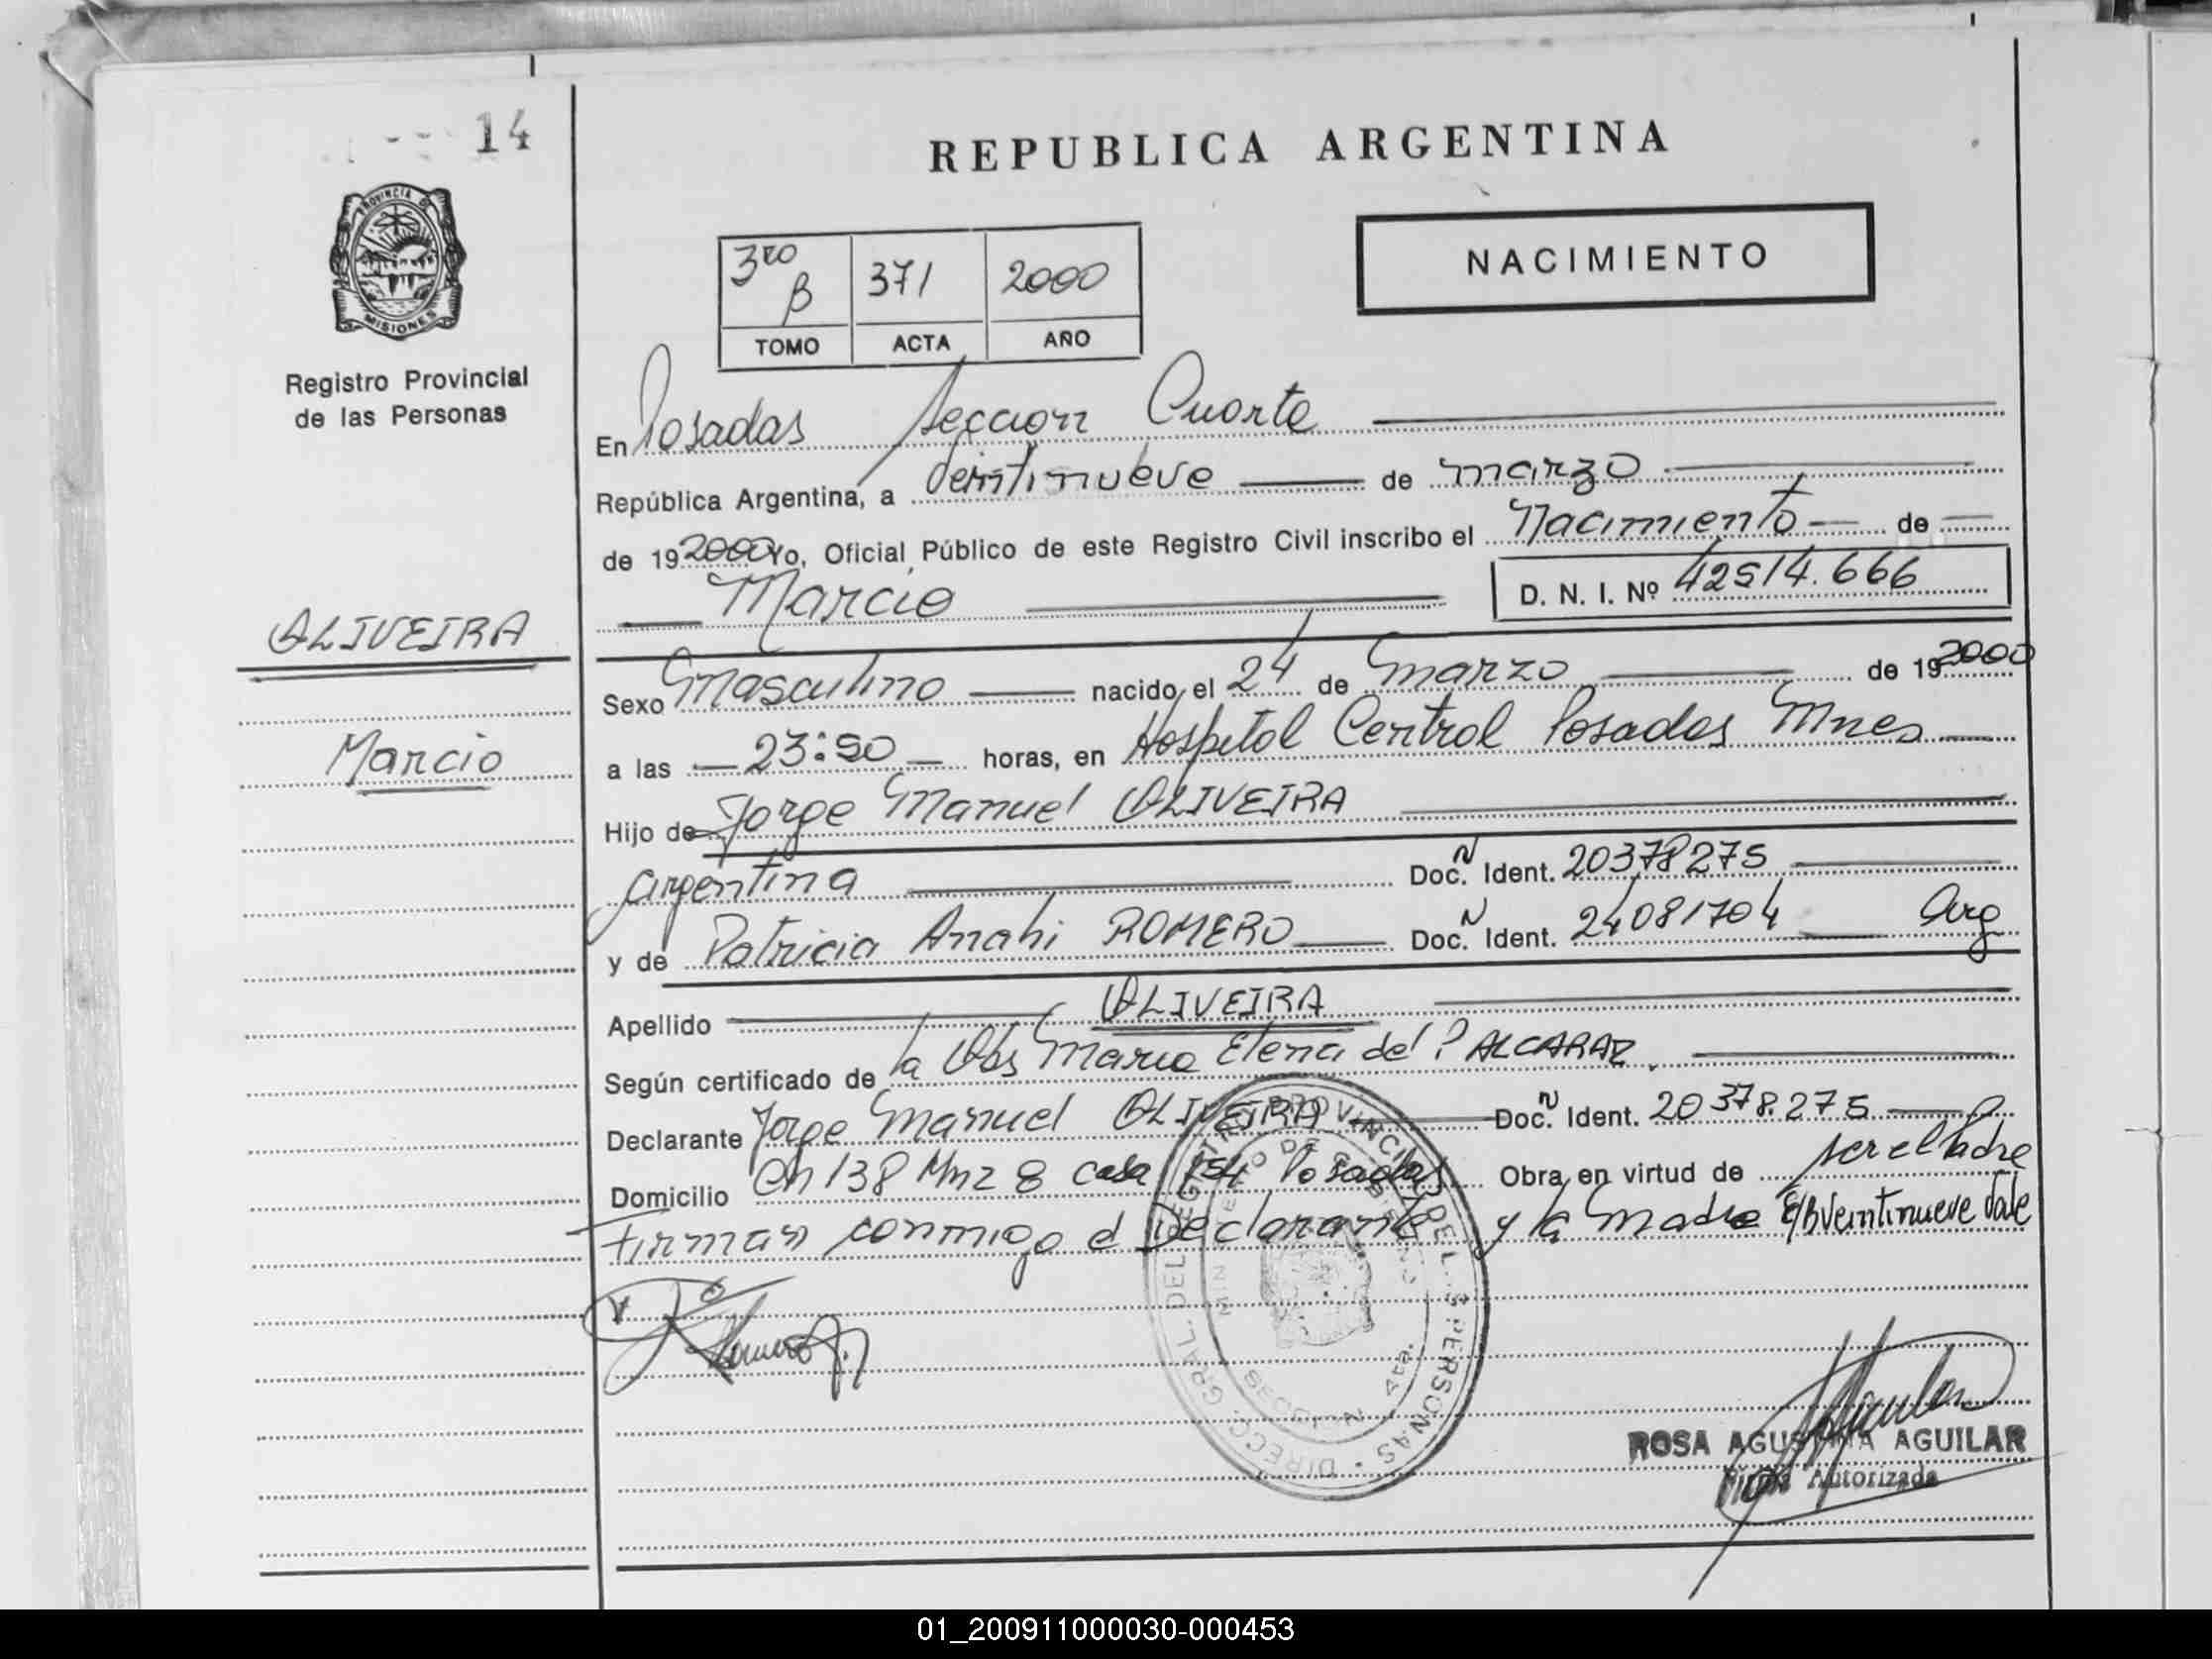 14
REPUBLICA ARGENTINA
PROVINCIA DE
MISIONES
Registro Provincial
de las Personas
3ro B 371 2000
TOMO ACTA AÑO
NACIMIENTO
En Posadas Sección Cuarta
República Argentina, a Veintinueve de marzo
de 19 2000 Yo, Oficial Público de este Registro Civil inscribo el Nacimiento de
Marcio D. N. I. Nº 42514.666
OLIVEIRA
Marcio
Sexo Masculino nacido el 24 de Marzo de 19 2000
a las 23:50 horas, en Hospital Central Posadas Mnes
Hijo de Jorge Manuel OLIVEIRA
Argentina Doc. N Ident. 20378275
y de Patricia Anahi ROMERO Doc. N Ident. 24081704 Arg
Apellido OLIVEIRA
Según certificado de la Obs Maria Elena del P ALCARAZ
Declarante Jorge Manuel OLIVEIRA Doc. N Ident. 20378.275
Domicilio Ch 138 Mnz 8 casa 154 Posadas Obra en virtud de ser el Padre
Firman conmigo el Declarante y la madre E/B Veintinueve Vale
DIRECC. GRAL. DEL REGISTRO PROVINCIAL DE L. S PERSONAS
MINISTERIO DE GOBIERNO
ROSA AGUSTINA AGUILAR
Firma Autorizada
01_200911000030-000453